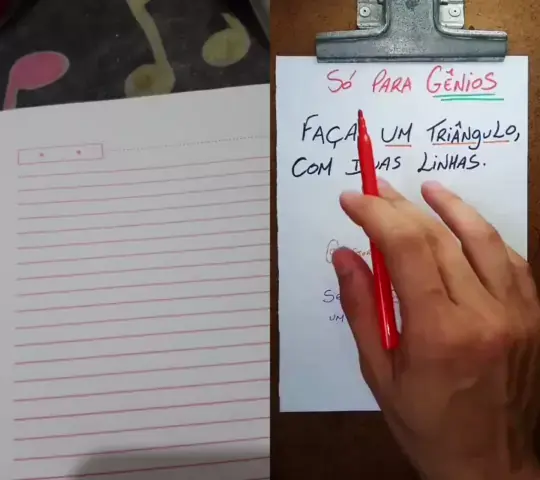 Só PARA GÊNIOS
FAÇA UM TRIÂNGULO,
COM DUAS LINHAS.
UM